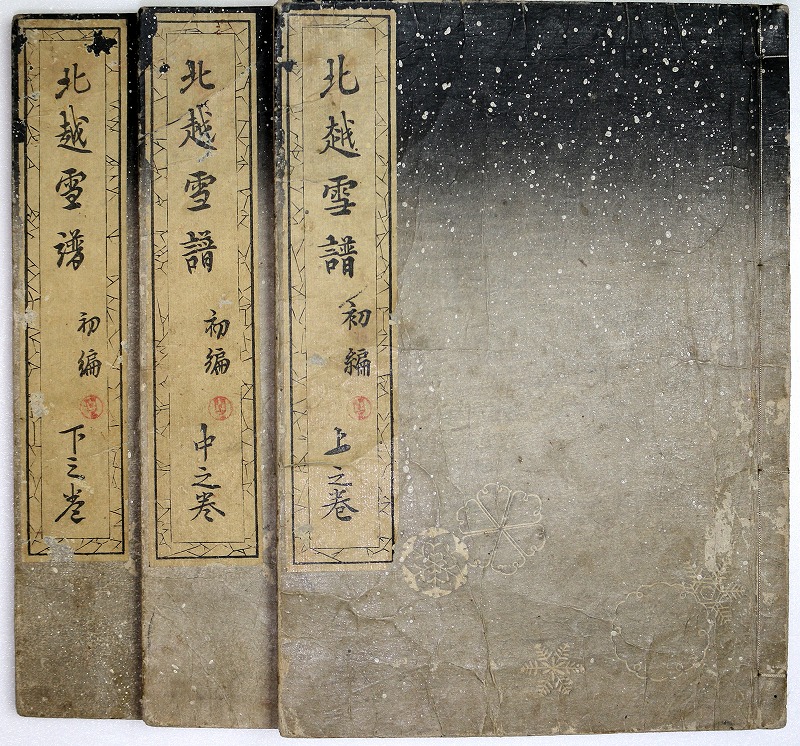 北越雪譜 初編 上之巻
北越雪譜 初編 中之巻
北越雪譜 初編 下之巻